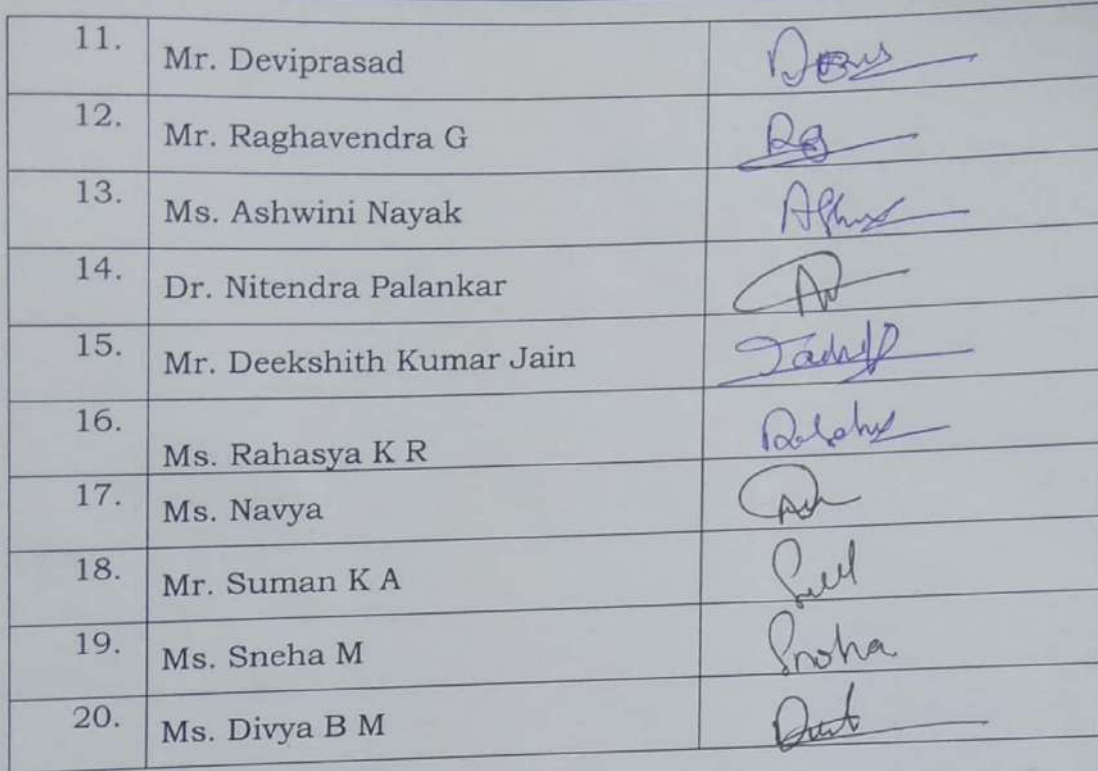 11. Mr. Deviprasad
12. Mr. Raghavendra G
13. Ms. Ashwini Nayak
14. Dr. Nitendra Palankar
15. Mr. Deekshith Kumar Jain
16. Ms. Rahasya K R
17. Ms. Navya
18. Mr. Suman K A
19. Ms. Sneha M Sneha
20. Ms. Divya B M